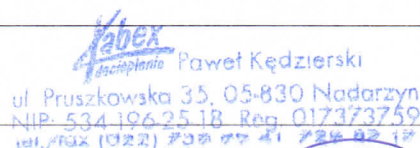 Fabex
docieplanie Paweł Kędzierski
ul. Pruszkowska 35, 05-830 Nadarzyn
NIP: 534-196-25-18 Reg. 017373759
tel./fax (022)